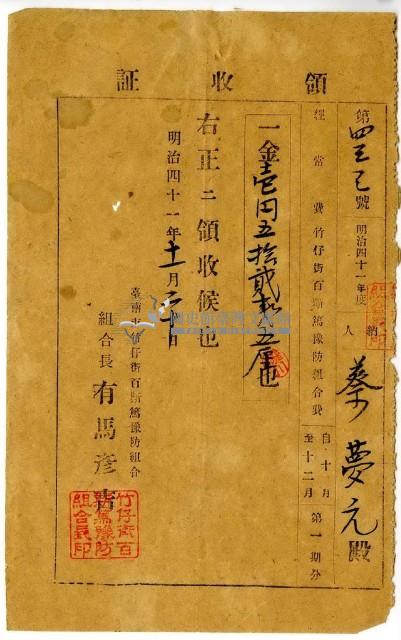 領收証
第四三三號 明治四十一年度 納人 蔡夢元殿
經常費竹仔街百斯篤豫防組合費 自十月至十二月 第一期分
一金壱円五拾貳錢五厘也
右正ニ領收候也
明治四十一年十一月 日
臺南市竹仔街百斯篤豫防組合
組合長 有馬彦吉
竹仔街百
斯篤豫防
組合長印